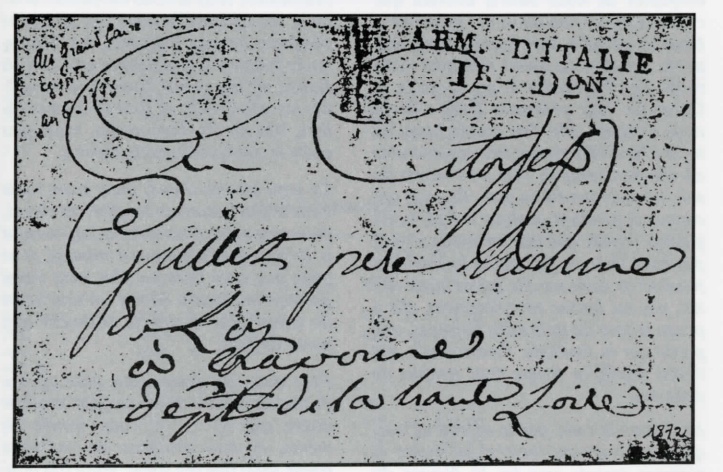 du grand Caire
Egypte
an 6 - 1793
ARM. D'ITALIE
I^RE D^ON
Citoyen
Gallet pere homme
de Loy
à Crapponne
dept de la haute Loire
1872